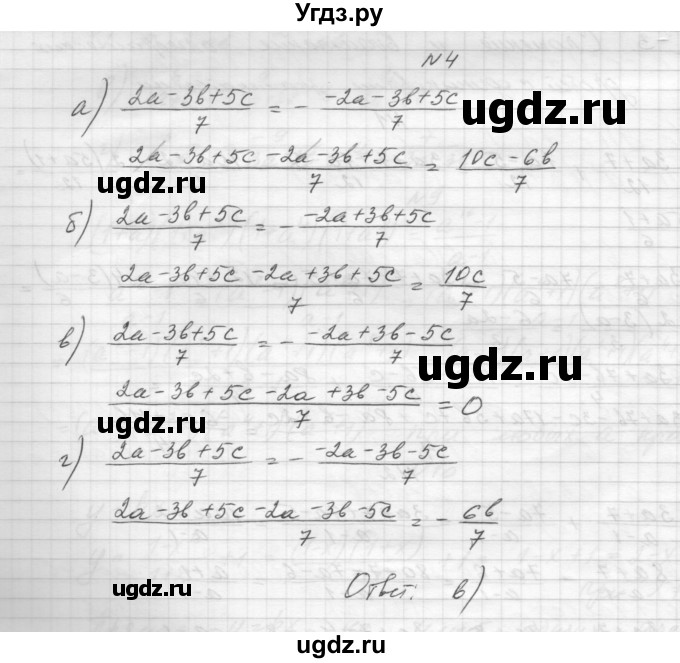 Угдз.ру
№4
а) (2a-3b+5c)/7 = - (-2a-3b+5c)/7
ugdz.ru
(2a-3b+5c-2a-3b+5c)/7 = (10c-6b)/7
ugdz.ru
б) (2a-3b+5c)/7 = - (-2a+3b+5c)/7
ugdz.ru
(2a-3b+5c-2a+3b+5c)/7 = 10c/7
в) (2a-3b+5c)/7 = - (-2a+3b-5c)/7
ugdz.ru
(2a-3b+5c-2a+3b-5c)/7 = 0
ugdz.ru
г) (2a-3b+5c)/7 = - (-2a-3b-5c)/7
ugdz.ru
(2a-3b+5c-2a-3b-5c)/7 = - 6b/7
ugdz.ru
Ответ: в)
ugdz.ru
ugdz.ru